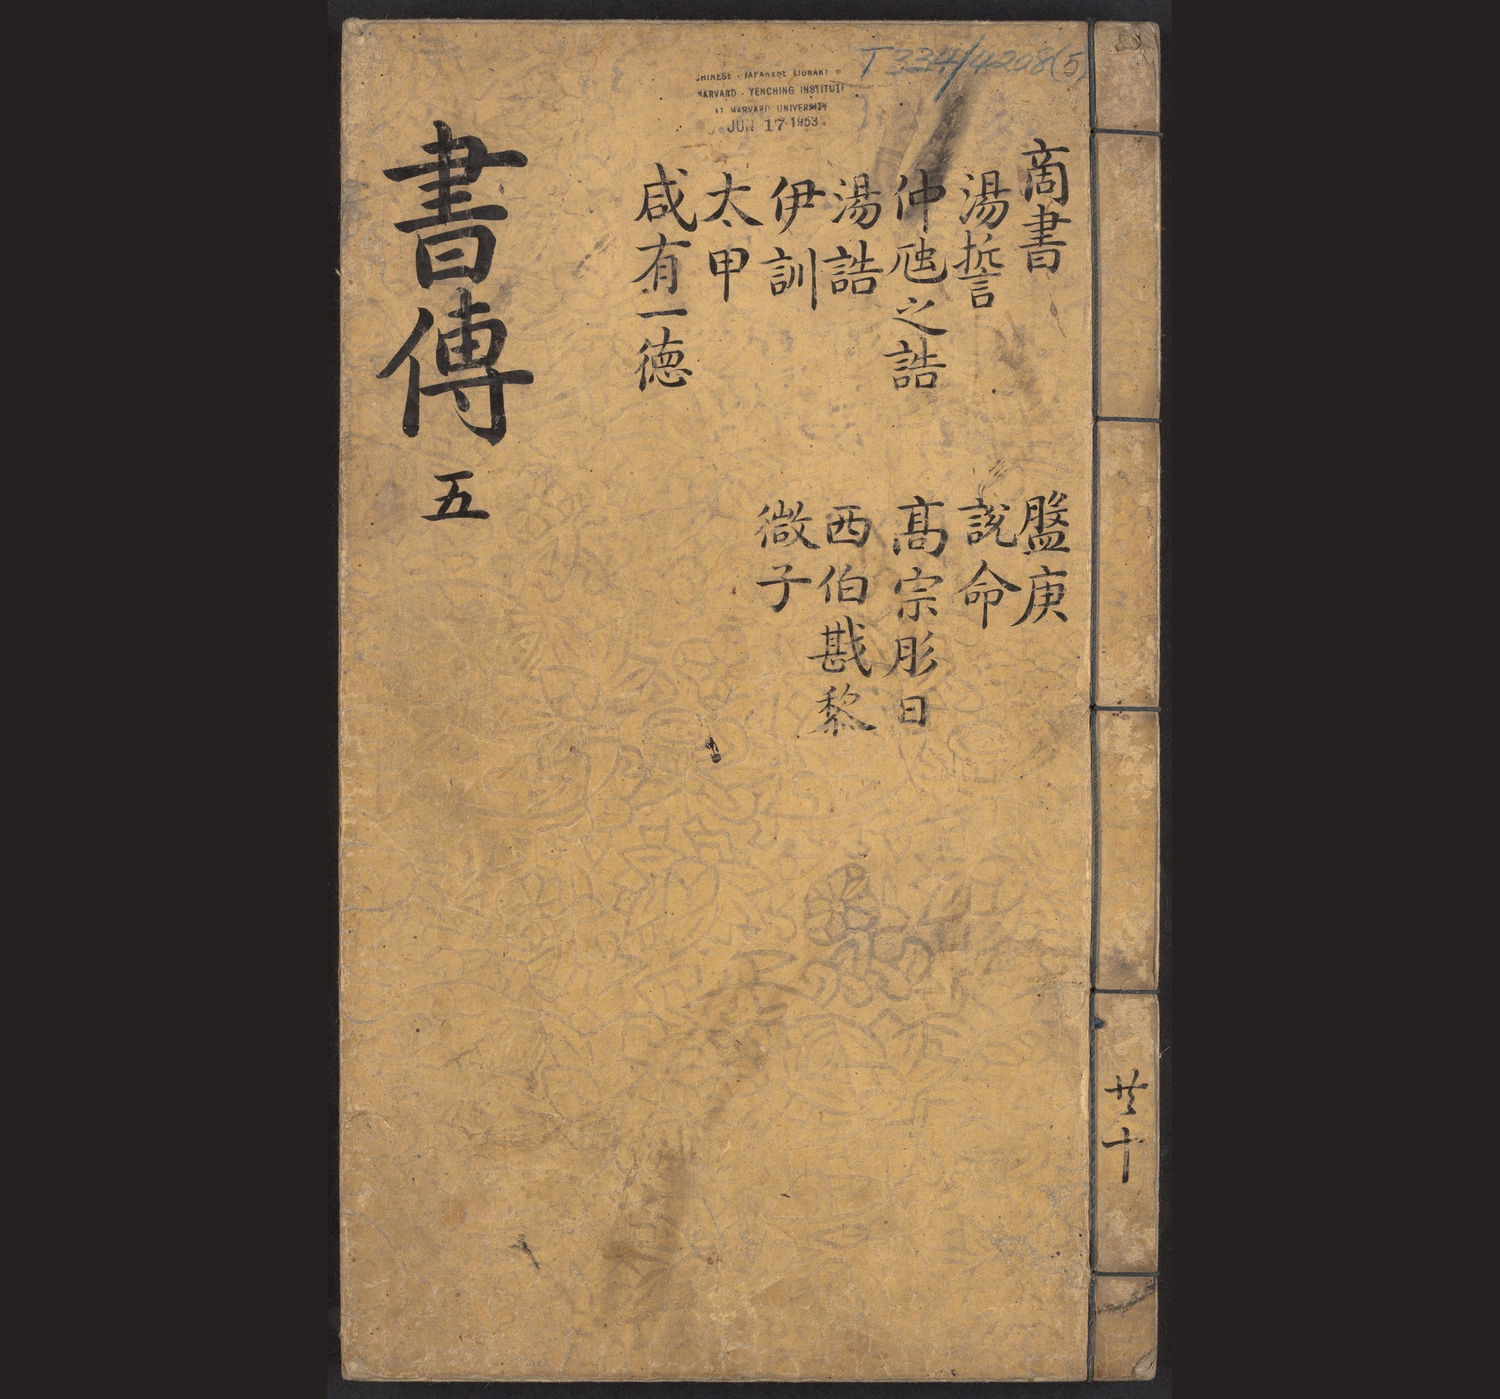 T334/4208(5)
CHINESE - JAPANESE LIBRARY
HARVARD - YENCHING INSTITUTE
AT HARVARD UNIVERSITY
JUN 17 1953
商書
湯誓
仲虺之誥
湯誥
伊訓
太甲
咸有一德
盤庚
說命
高宗肜日
西伯戡黎
微子
書傳 五
共十